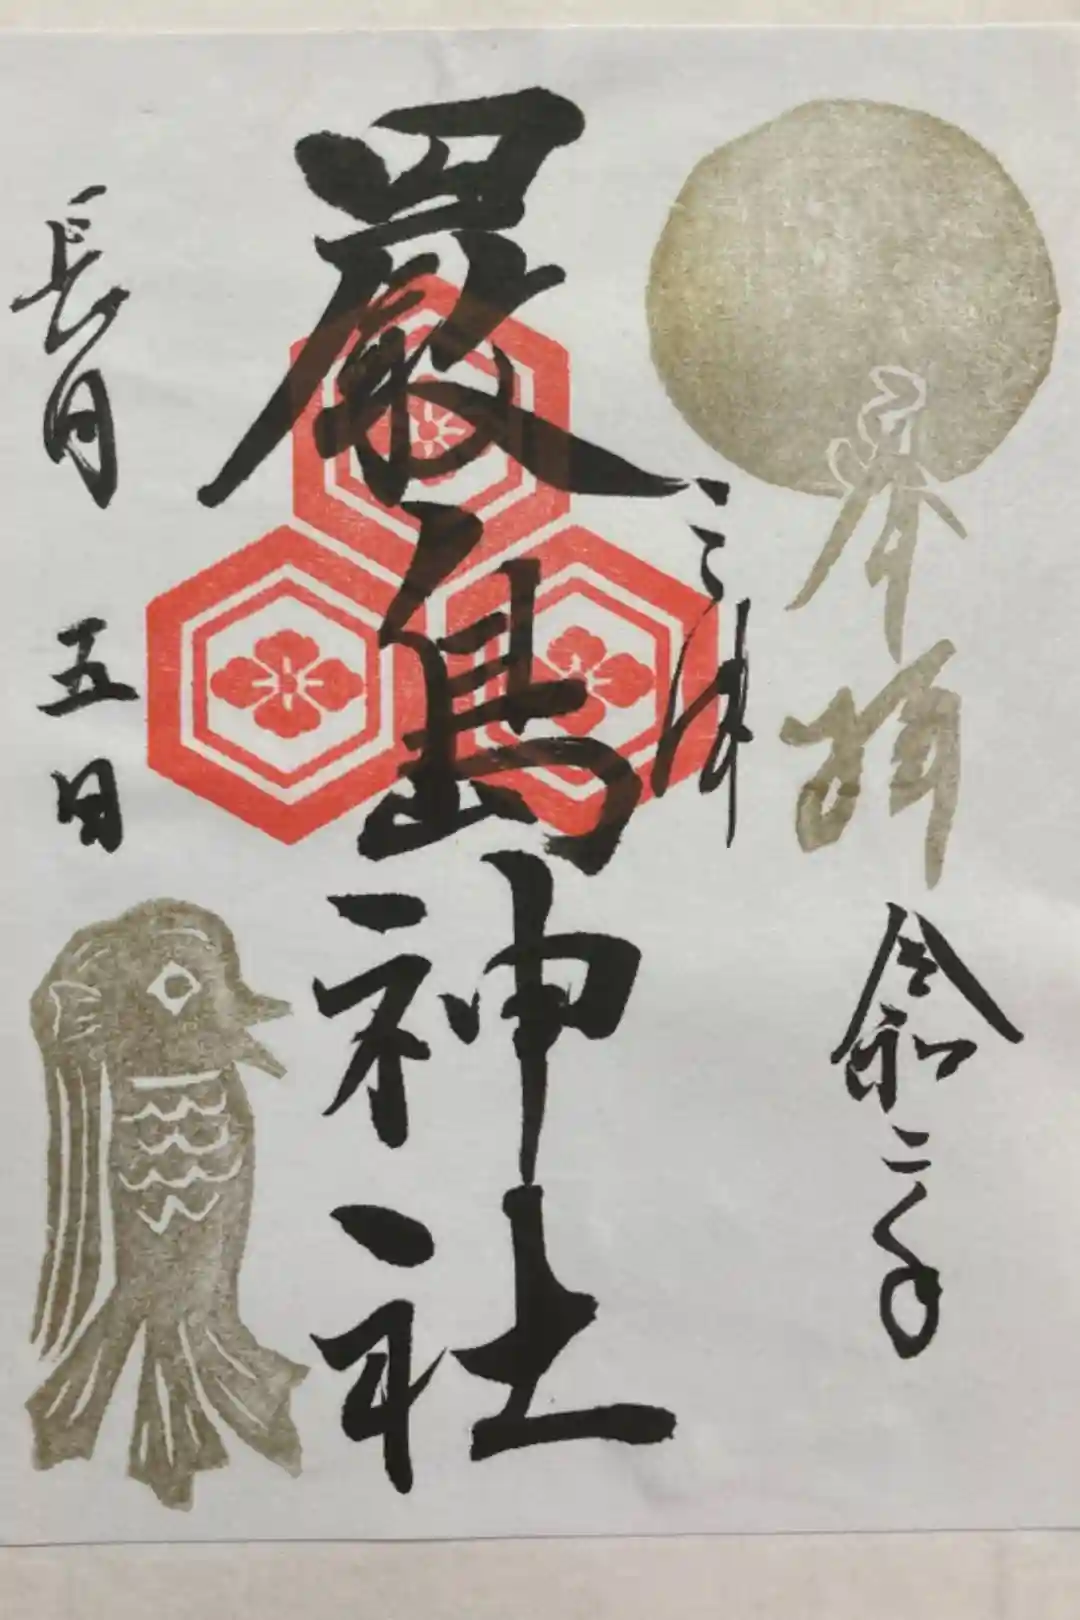 奉拝
令和二年
三津
厳島神社
長月
五日